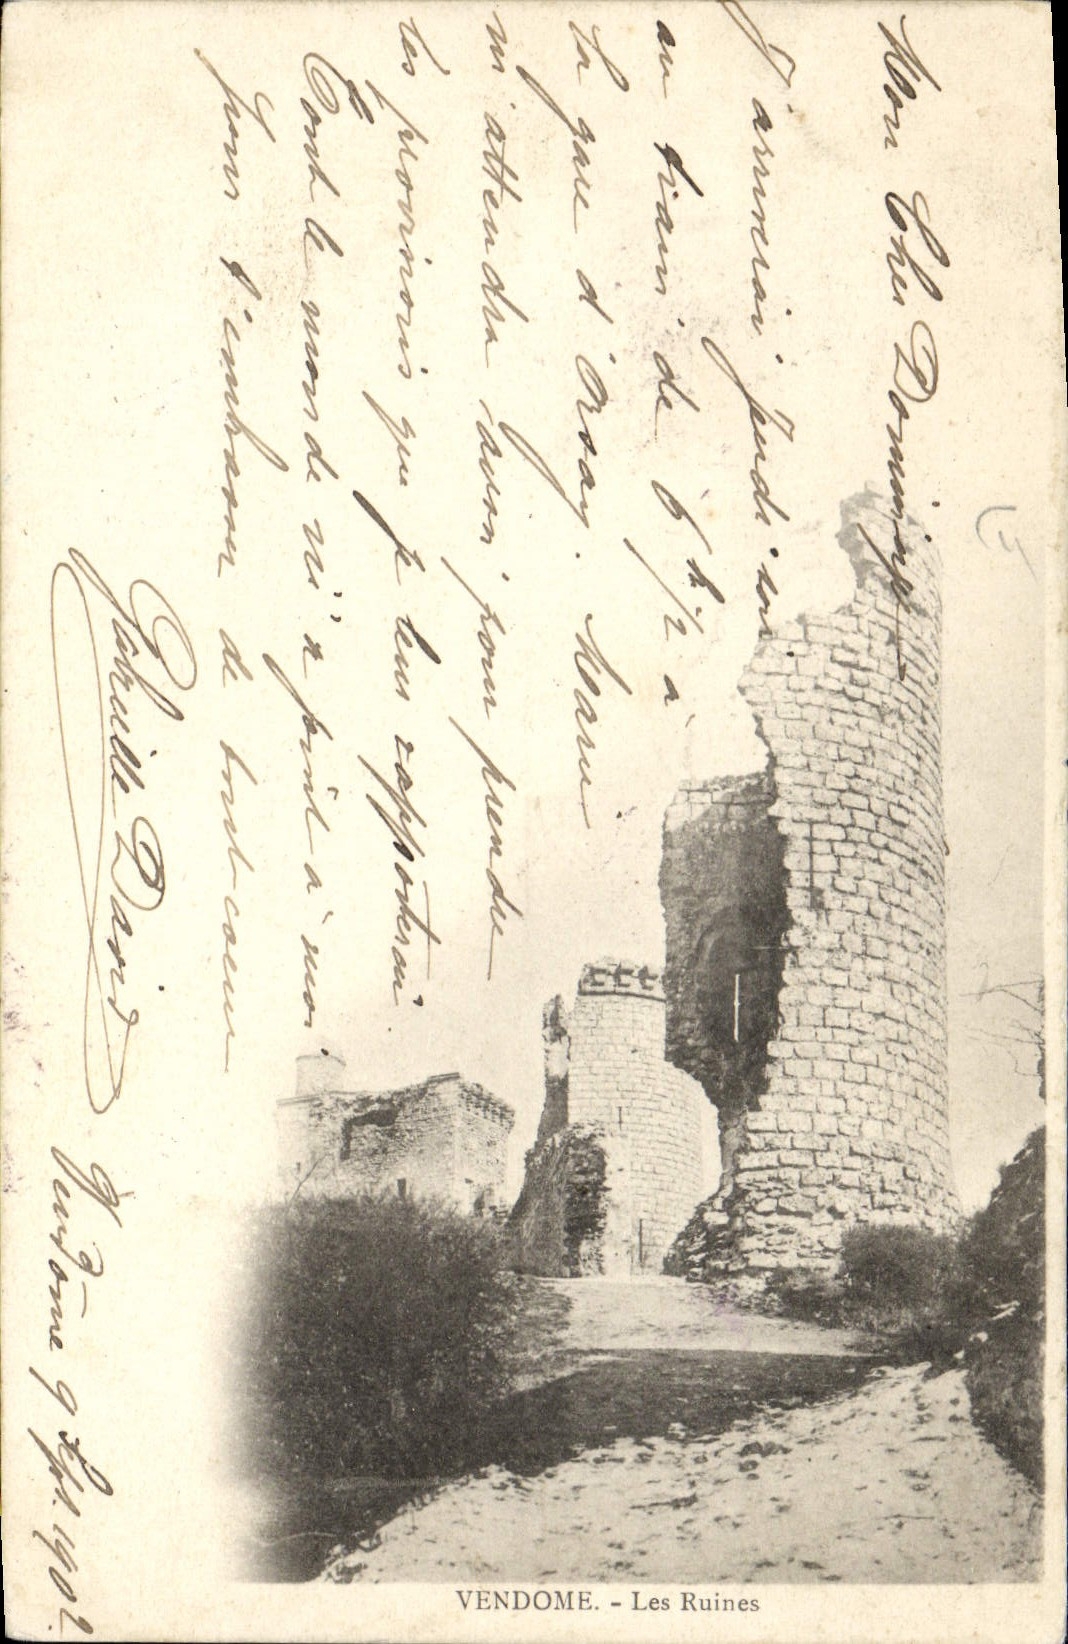 Mon Cher Dominique
J'arriverai jeudi soir
au train de 6 h 1/2 à
la gare d'Orsay. Marie
m'attendra avon pour prendre
les provisions que je leur rapporterai
Tout le monde ici se joint à moi
pour t'embrasser de tout coeur
Gabrielle David
Vendôme 9 Sept. 1902
VENDOME. - Les Ruines